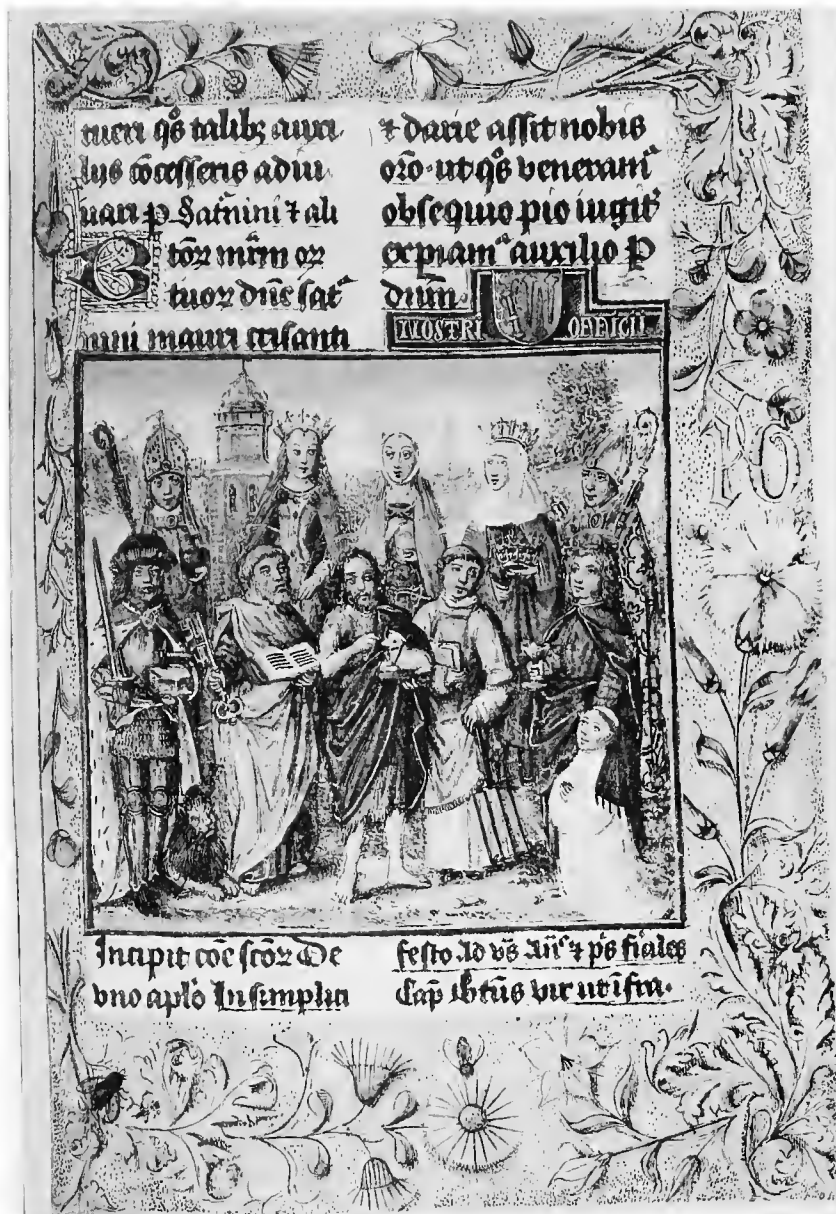 tueri q̄s talib; auxi
liis cōcesseris adiu
uari p. Satn̄ini ⁊ ali
B
toꝝ mr̄m oꝛ
tuoꝝ dn̄e sat
nini mauri crisanti
⁊ darie assit nobis
or̄o · ut q̄s veneram
obsequio pio iugit
expiam auxilio P
dūm·
NOSTRI OFFICII
Incipit cōe scōꝝ De
vno aplō In simplici
festo Ad vs̄ An̄ ⁊ ps̄ fiales
Cap̄ Btūs vir ut ifra·